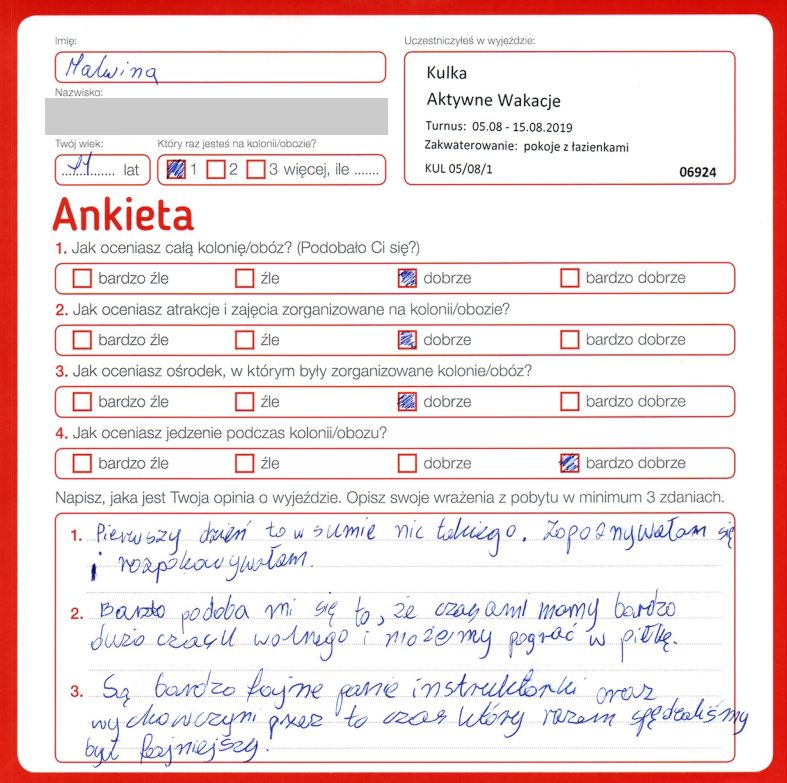 Imię:
Malwina
Uczestniczyłeś w wyjeździe:
Kulka
Aktywne Wakacje
Turnus: 05.08 - 15.08.2019
Zakwaterowanie: pokoje z łazienkami
KUL 05/08/1
06924
Nazwisko:
Twój wiek:
11 lat
Który raz jesteś na kolonii/obozie?
1 2 3 więcej, ile .......
Ankieta
1. Jak oceniasz całą kolonię/obóz? (Podobało Ci się?)
bardzo źle źle dobrze bardzo dobrze
2. Jak oceniasz atrakcje i zajęcia zorganizowane na kolonii/obozie?
bardzo źle źle dobrze bardzo dobrze
3. Jak oceniasz ośrodek, w którym były zorganizowane kolonie/obóz?
bardzo źle źle dobrze bardzo dobrze
4. Jak oceniasz jedzenie podczas kolonii/obozu?
bardzo źle źle dobrze bardzo dobrze
Napisz, jaka jest Twoja opinia o wyjeździe. Opisz swoje wrażenia z pobytu w minimum 3 zdaniach.
1. Pierwszy dzień to w sumie nic takiego. Zapoznywałam się
i rozpakowywałam.
2. Bardzo podoba mi się to, że czasami mamy bardzo
dużo czasu wolnego i możemy pograć w piłkę.
3. Są bardzo fajne panie instruktorki oraz
wychowczyni przez to czas który razem spędzaliśmy
był fajniejszy.